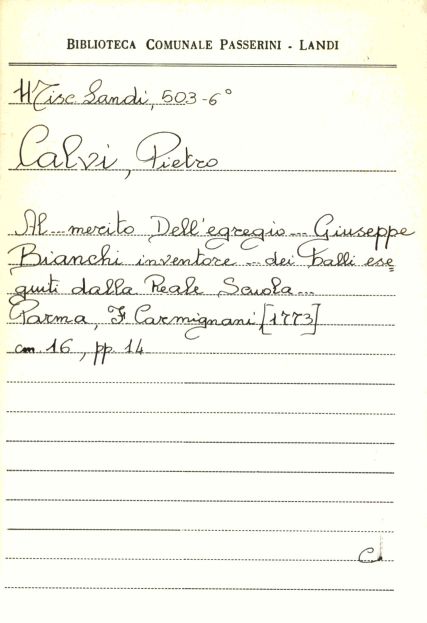 BIBLIOTECA COMUNALE PASSERINI - LANDI
Misc Landi, 503-6°
Calvi, Pietro
Al... merito Dell'egregio... Giuseppe
Bianchi inventore... dei balli ese=
guiti dalla Reale Scuola...
Parma, F. Carmignani [1773]
cm 16, pp. 14